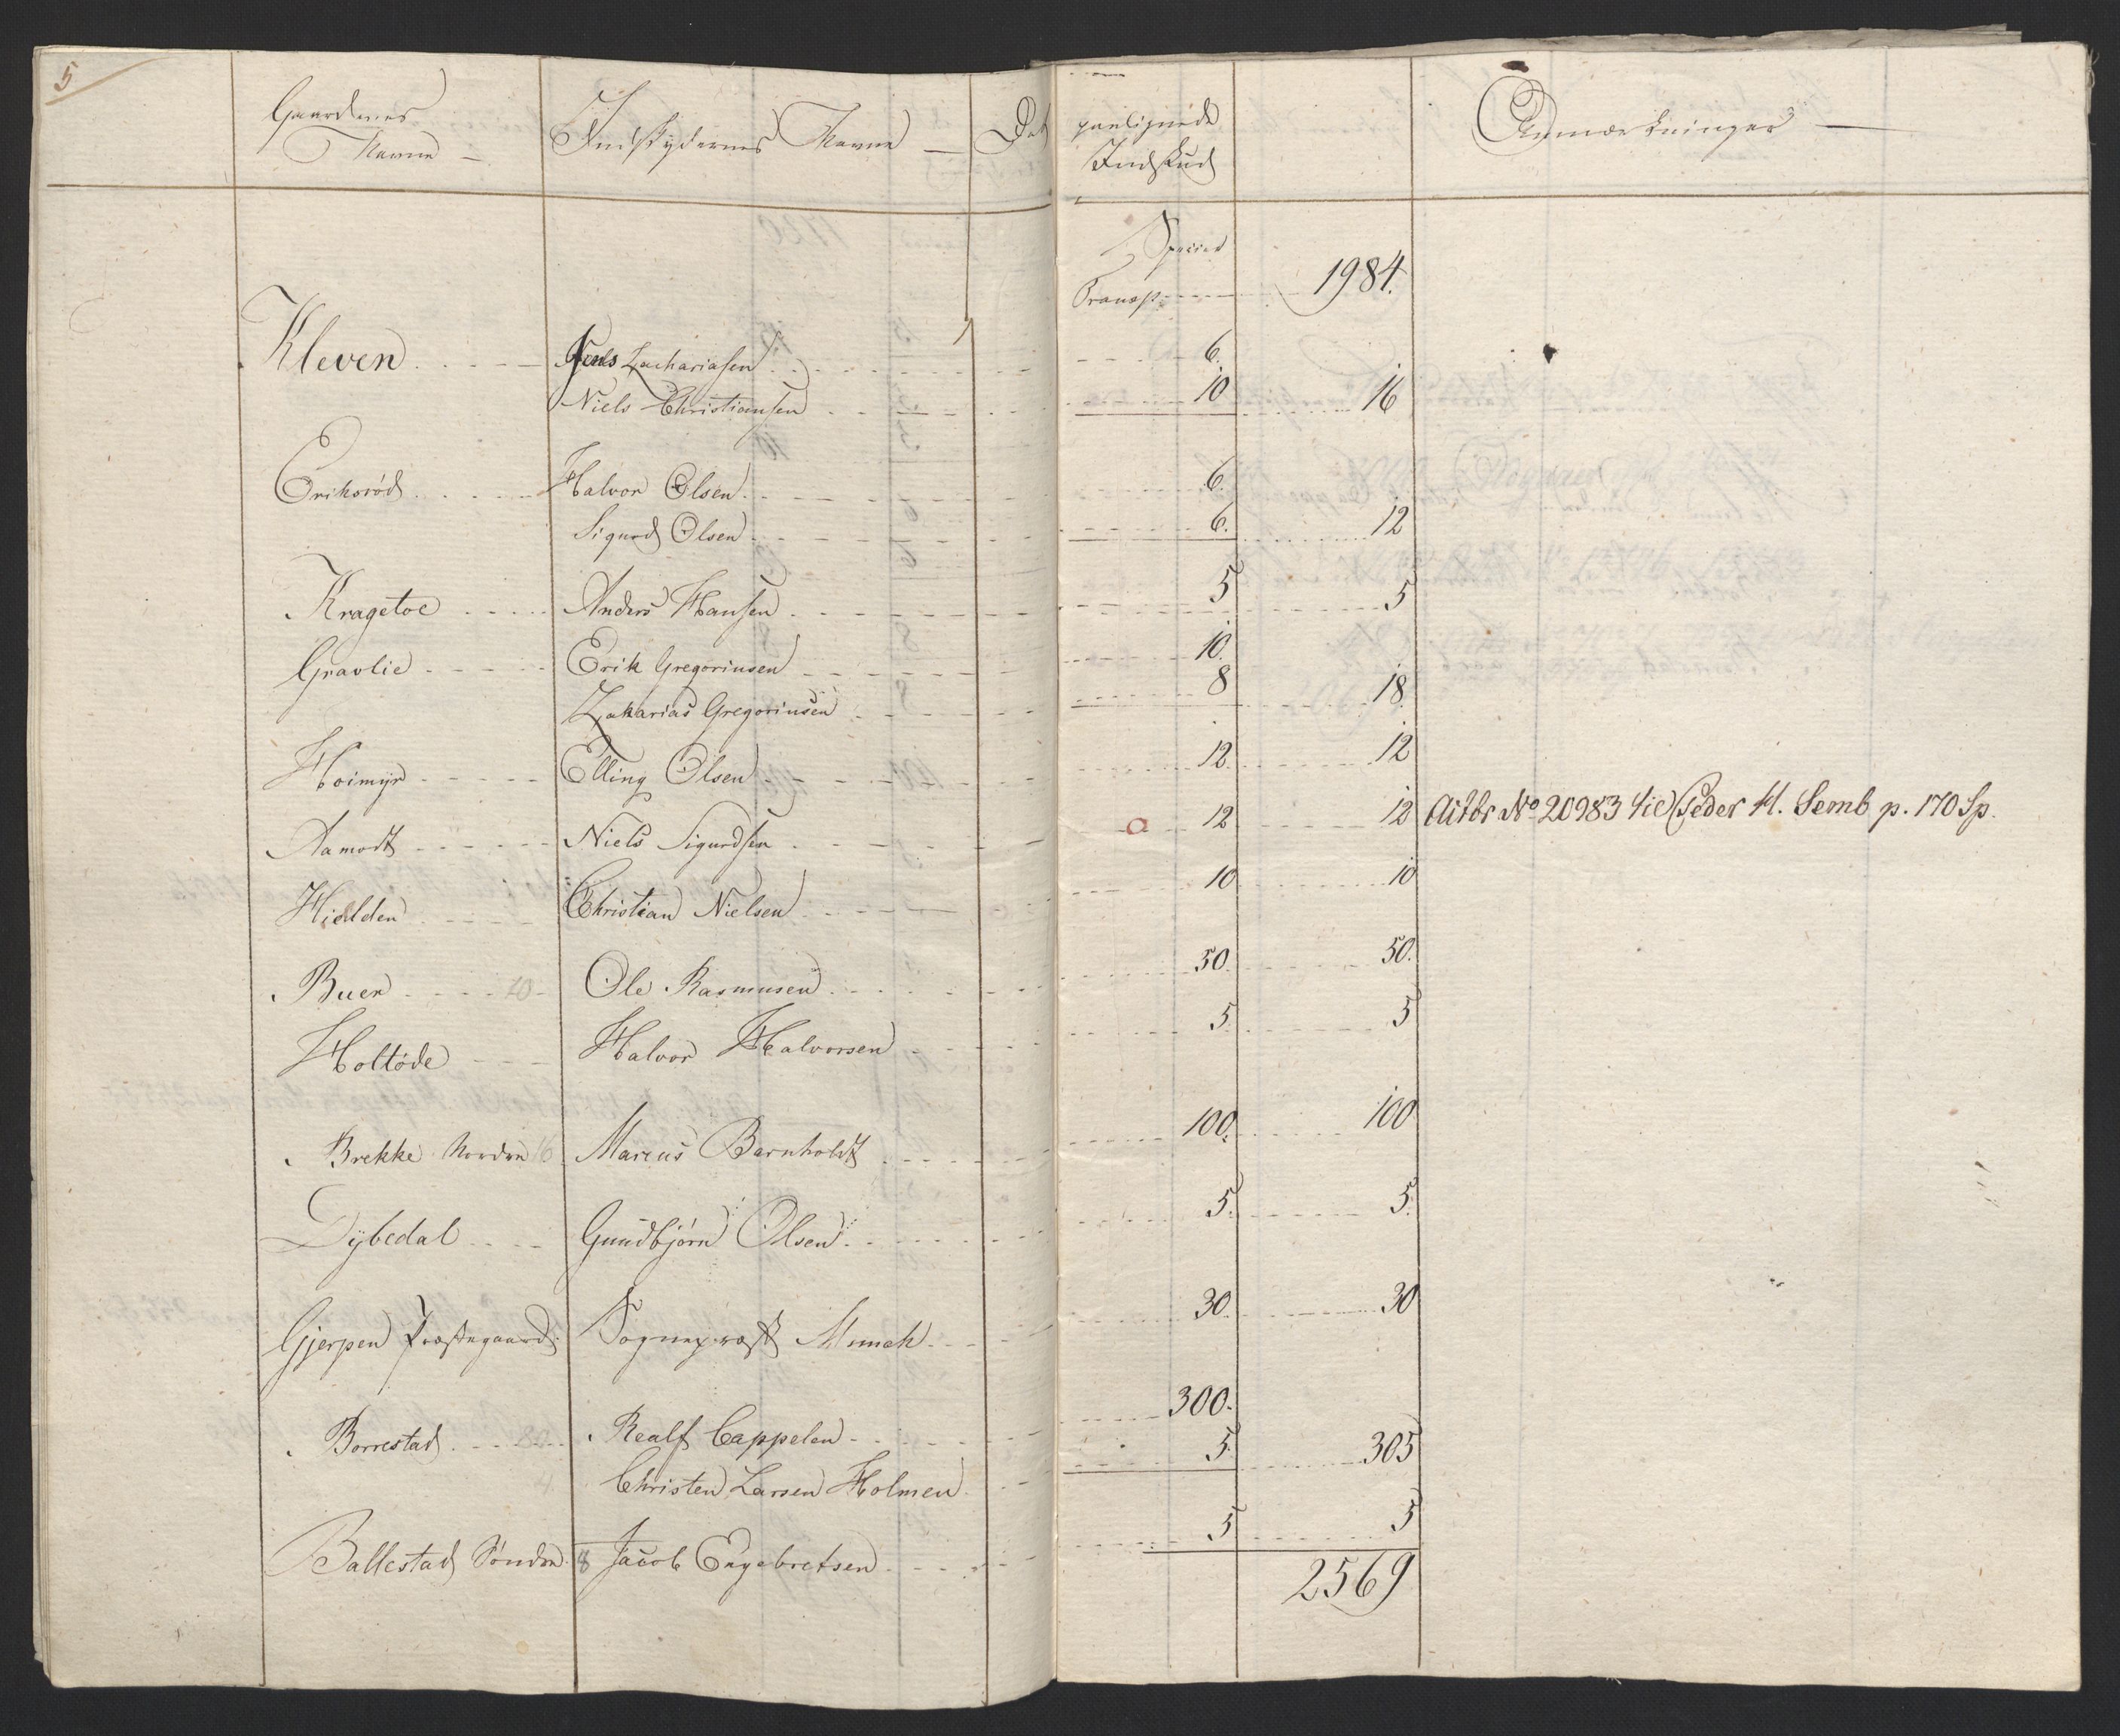 5
Gaardenes Navne — Indskydernes Navne — Det paalignede Indskud Anmærkninger —
Species
Transp. 1984.
Kleven Zachariasen 6.
Niels Christiansen 10 16
Eriksrød Halvor Olsen 6.
Sigurd Olsen 6. 12
Kragetoe Anders Hansen 5 5
Gravlie Erik Gregoriusen 10.
Zakarias Gregoriusen 8 18
Hoimyr Elling Olsen 12 12
Aamodt Niels Sigurdsen 12 12 No 20983 Peder H. Semb p. 170 Sp.
Hielden Christian Nielsen 10 10
Buer 20 Ole Rasmusen 50 50.
Holtøde Halvor Halvorsen 5 5
Brekke Nordre 16 Marcus Barnholdt 100. 100
Dybedal Gundbjørn Olsen 5. 5.
Gjerpen Præstegaard Sognepræst Munch 30 30
Borrestad 80 Realf Cappelen 300.
4 Christen Larsen Holmen 5. 305
Ballestad Søndre 8 Jacob Engebretsen 5 5
2569